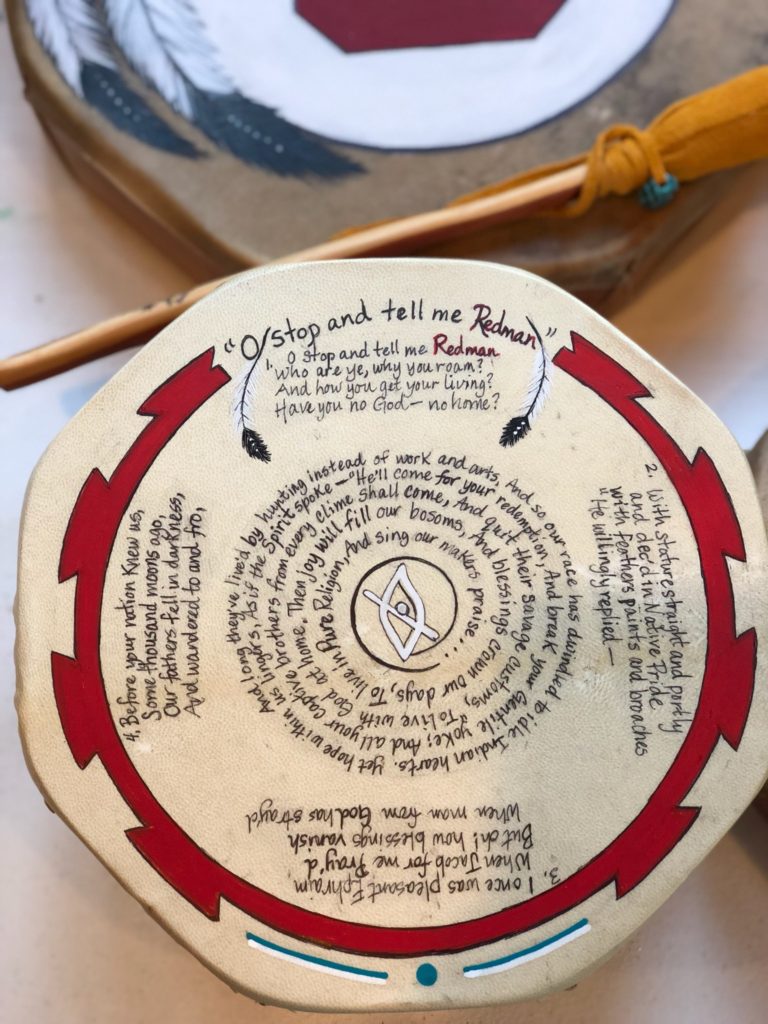 "O stop and tell me Redman"
1. O stop and tell me Redman
Who are ye, why you roam?
And how you get your living?
Have you no God — no home?
2. With stature straight and portly
and deck'd in Native Pride,
with feathers, paints and broaches
"He willingly replied —
3. I once was pleasant Ephraim
When Jacob for me Pray'd
But oh! how blessings vanish
When man from God has stray'd
4. Before your nation knew us,
Some thousand moons ago,
Our fathers fell in darkness,
And wandered to and fro,
And long they've lived by hunting instead of work and arts, And so our race has dwindled to idle Indian hearts. Yet hope within
us lingers, As if the Spirit spoke — "He'll come for your redemption, And break your Gentile yoke; And all your captive
brothers from every clime shall come, And quit their savage customs, To live with God at home.
Then joy will fill our bosoms, And blessings crown our days, To live in
Pure Religion, And sing our makers praise....